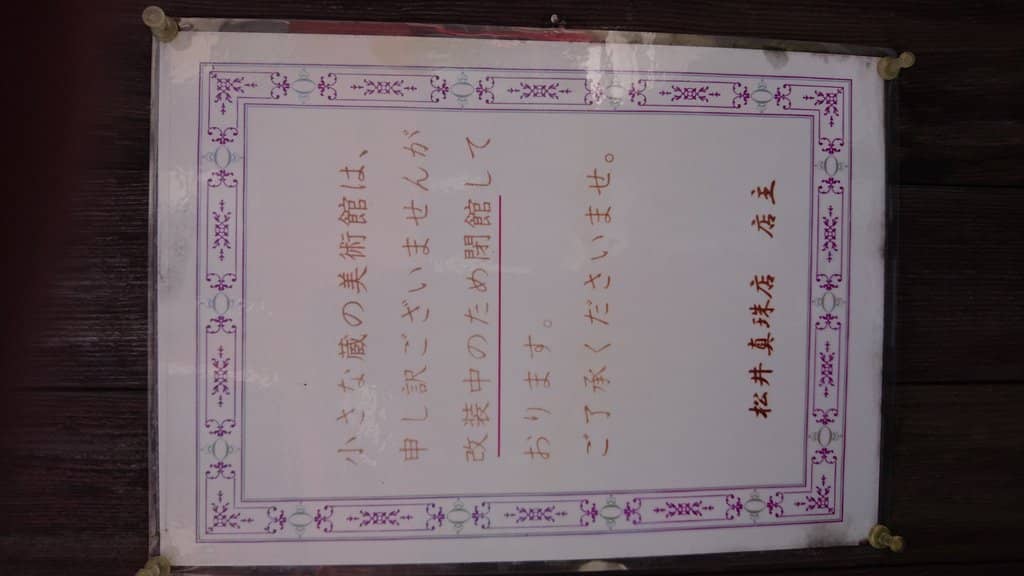 小さな蔵の美術館は、
申し訳ございませんが
改装中のため閉館して
おります。
ご了承くださいませ。
松井真珠店 店主